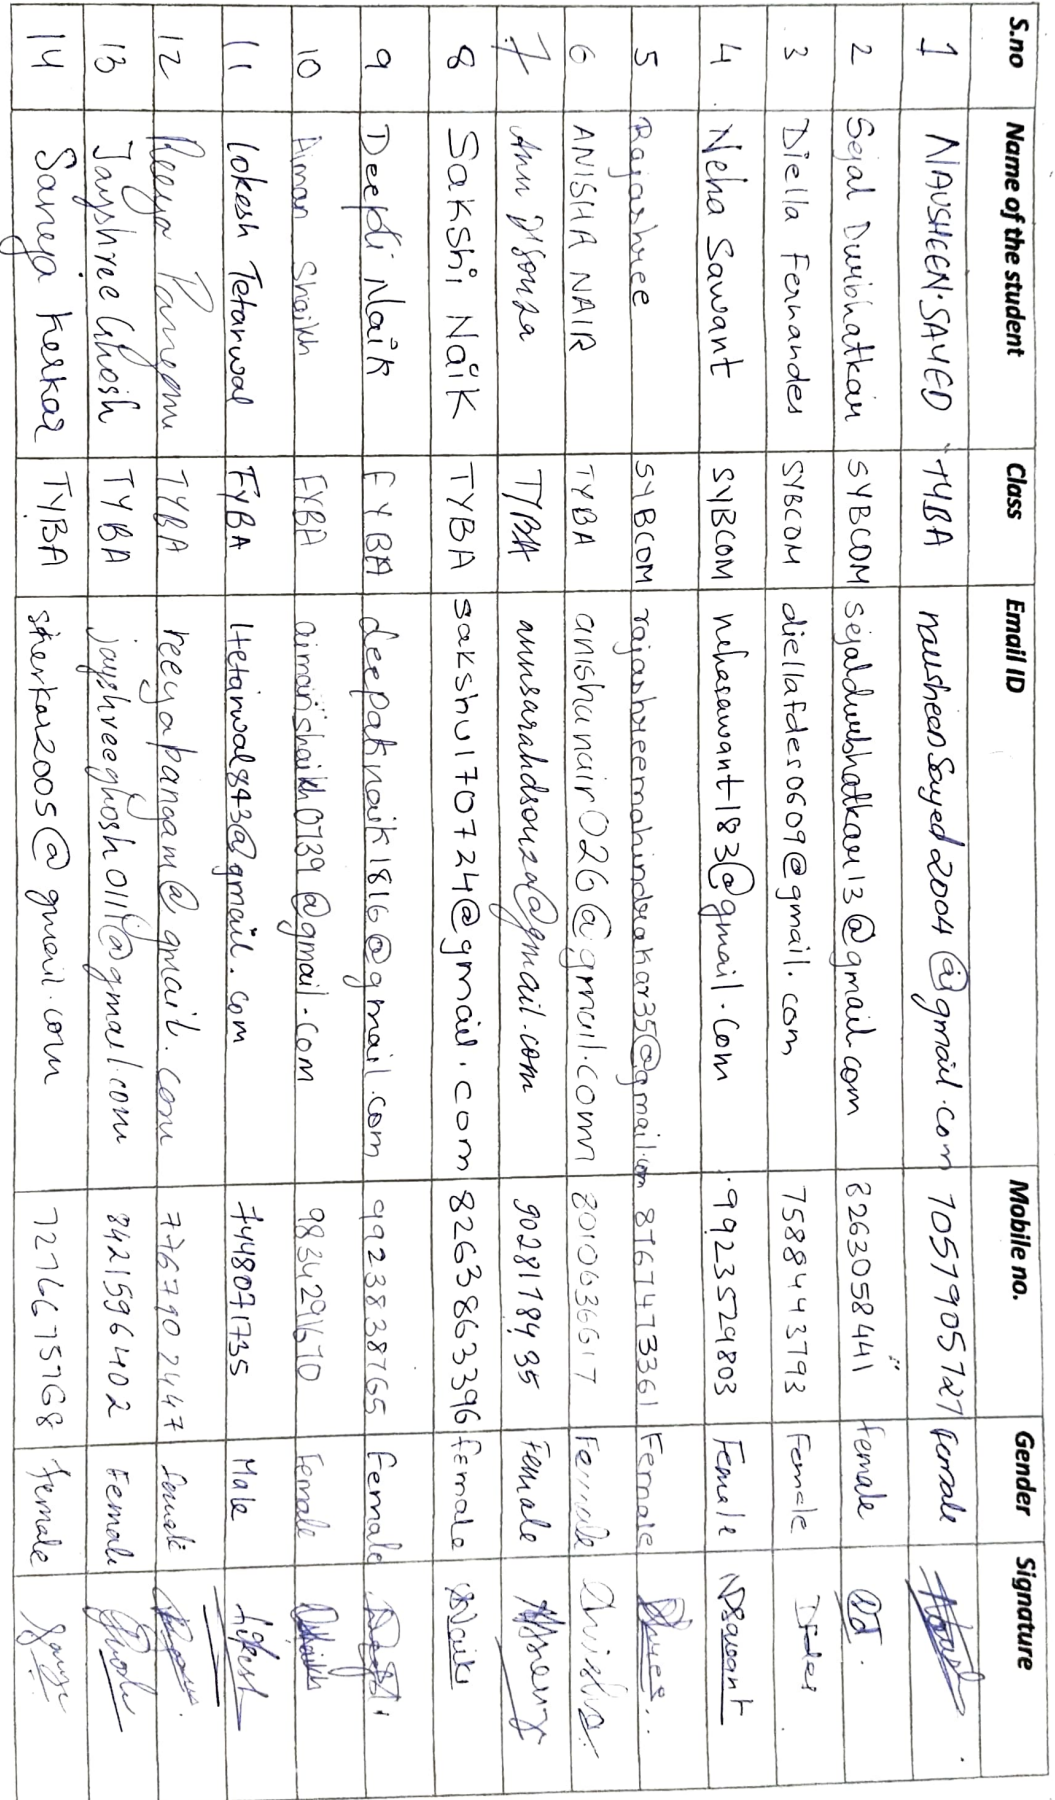 S.no Name of the student Class Email ID Mobile no. Gender Signature
1 NAUSHEEN.SAYED TYBA nausheensayed2004@gmail.com 7057905727 female
2 Sejal Dwibhatkar SYBCOM sejaldwibhatkar13@gmail.com 8263058441 female
3 Diella Fernandes SYBCOM diellafdes0609@gmail.com 7588443793 Female DFdes
4 Neha Sawant SYBCOM nehasawant183@gmail.com 9923529803 Female NSawant
5 Rajashree SYBCOM rajashreemahindrakar35@gmail.com 8767473361 Female
6 ANISHA NAIR TYBA anishanair026@gmail.com 8010636617 Female Anisha
7 Ann D'souza TYBA annsarahdsouza@gmail.com 9028178935 Female
8 Sakshi Naik TYBA sakshu170724@gmail.com 8263863396 female SNaik
9 Deepti Naik FYBA deepaknaik1816@gmail.com 9923838765 female Deepti
10 Aiman Shaikh FYBA aimanshaikh0739@gmail.com 9834291670 Female AShaikh
11 Lokesh Tetarwal FYBA ltetarwal843@gmail.com 7448071735 Male
12 Reeya Pangam TYBA reeyapangam@gmail.com 7767902447 female
13 Jayshree Ghosh TYBA jayshreeghosh0111@gmail.com 8421596402 Female
14 Saneya Kerkar TYBA skerkar2005@gmail.com 7276675768 female